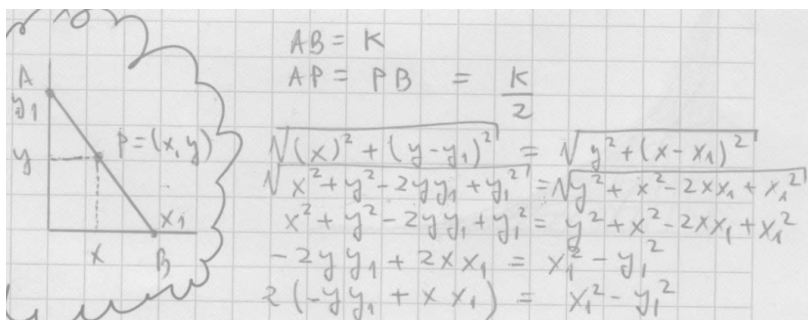 A
y₁
y
P=(x, y)
x₁
x
B
AB = K
AP = PB = K/2
√((x)² + (y-y₁)²) = √(y² + (x-x₁)²)
√(x² + y² - 2yy₁ + y₁²) = √(y² + x² - 2xx₁ + x₁²)
x² + y² - 2yy₁ + y₁² = y² + x² - 2xx₁ + x₁²
-2yy₁ + 2xx₁ = x₁² - y₁²
2(-yy₁ + xx₁) = x₁² - y₁²